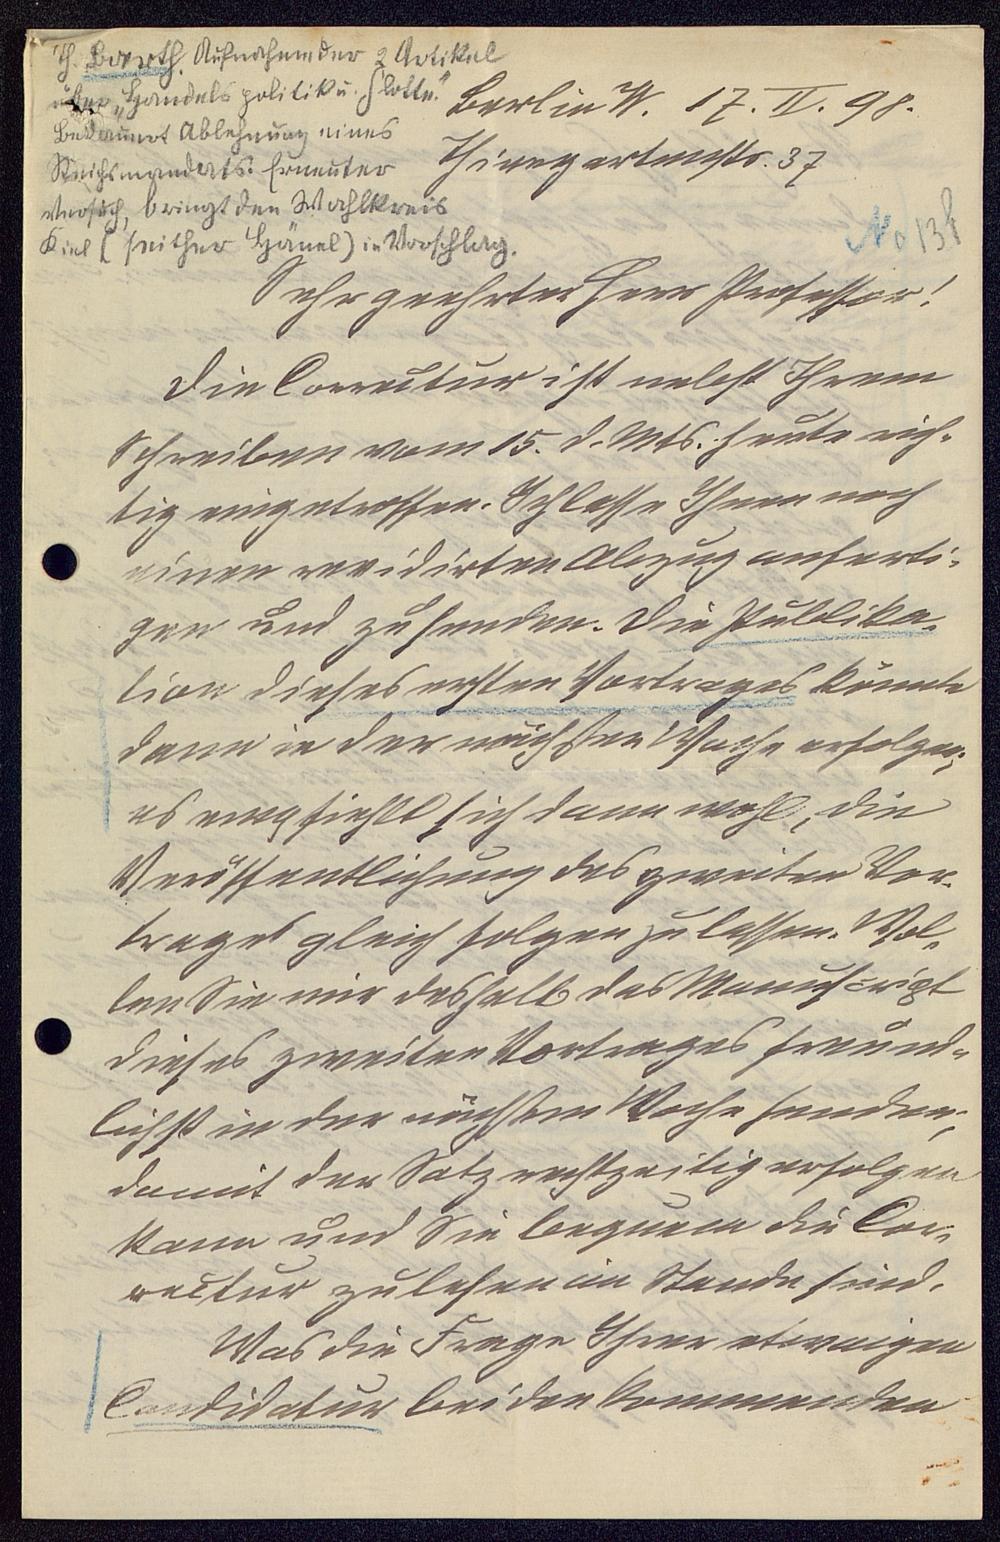 Th. Barth. Aufnahme der 2 Artikel
über "Handelspolitik u. Flotte."
Bedauert Ablehnung eines
Reichsmandats. Erneuter
Versuch, bringt den Wahlkreis
Kiel (seither Hänel) in Vorschlag.
Berlin W. 17. II. 98.
Thiergartenstr. 37
No 138
Sehr geehrter Herr Professor!
Die Correctur ist nebst Ihrem
Schreiben vom 15. d. Mts. heute rich-
tig eingetroffen. Ich lasse Ihnen noch
einen revidirten Abzug anferti-
gen und zusenden. Die Publika-
tion dieses ersten Vortrages könnte
dann in der nächsten Woche erfolgen;
es empfiehlt sich dann wohl, die
Veröffentlichung des zweiten Vor-
trages gleich folgen zu lassen. Wol-
len Sie mir deshalb das Manuscript
dieses zweiten Vortrages freund-
lichst in der nächsten Woche senden,
damit der Satz rechtzeitig erfolgen
kann und Sie bequem die Cor-
rectur zu lesen im Stande sind.
Was die Frage Ihrer etwaigen
Candidatur bei den kommenden